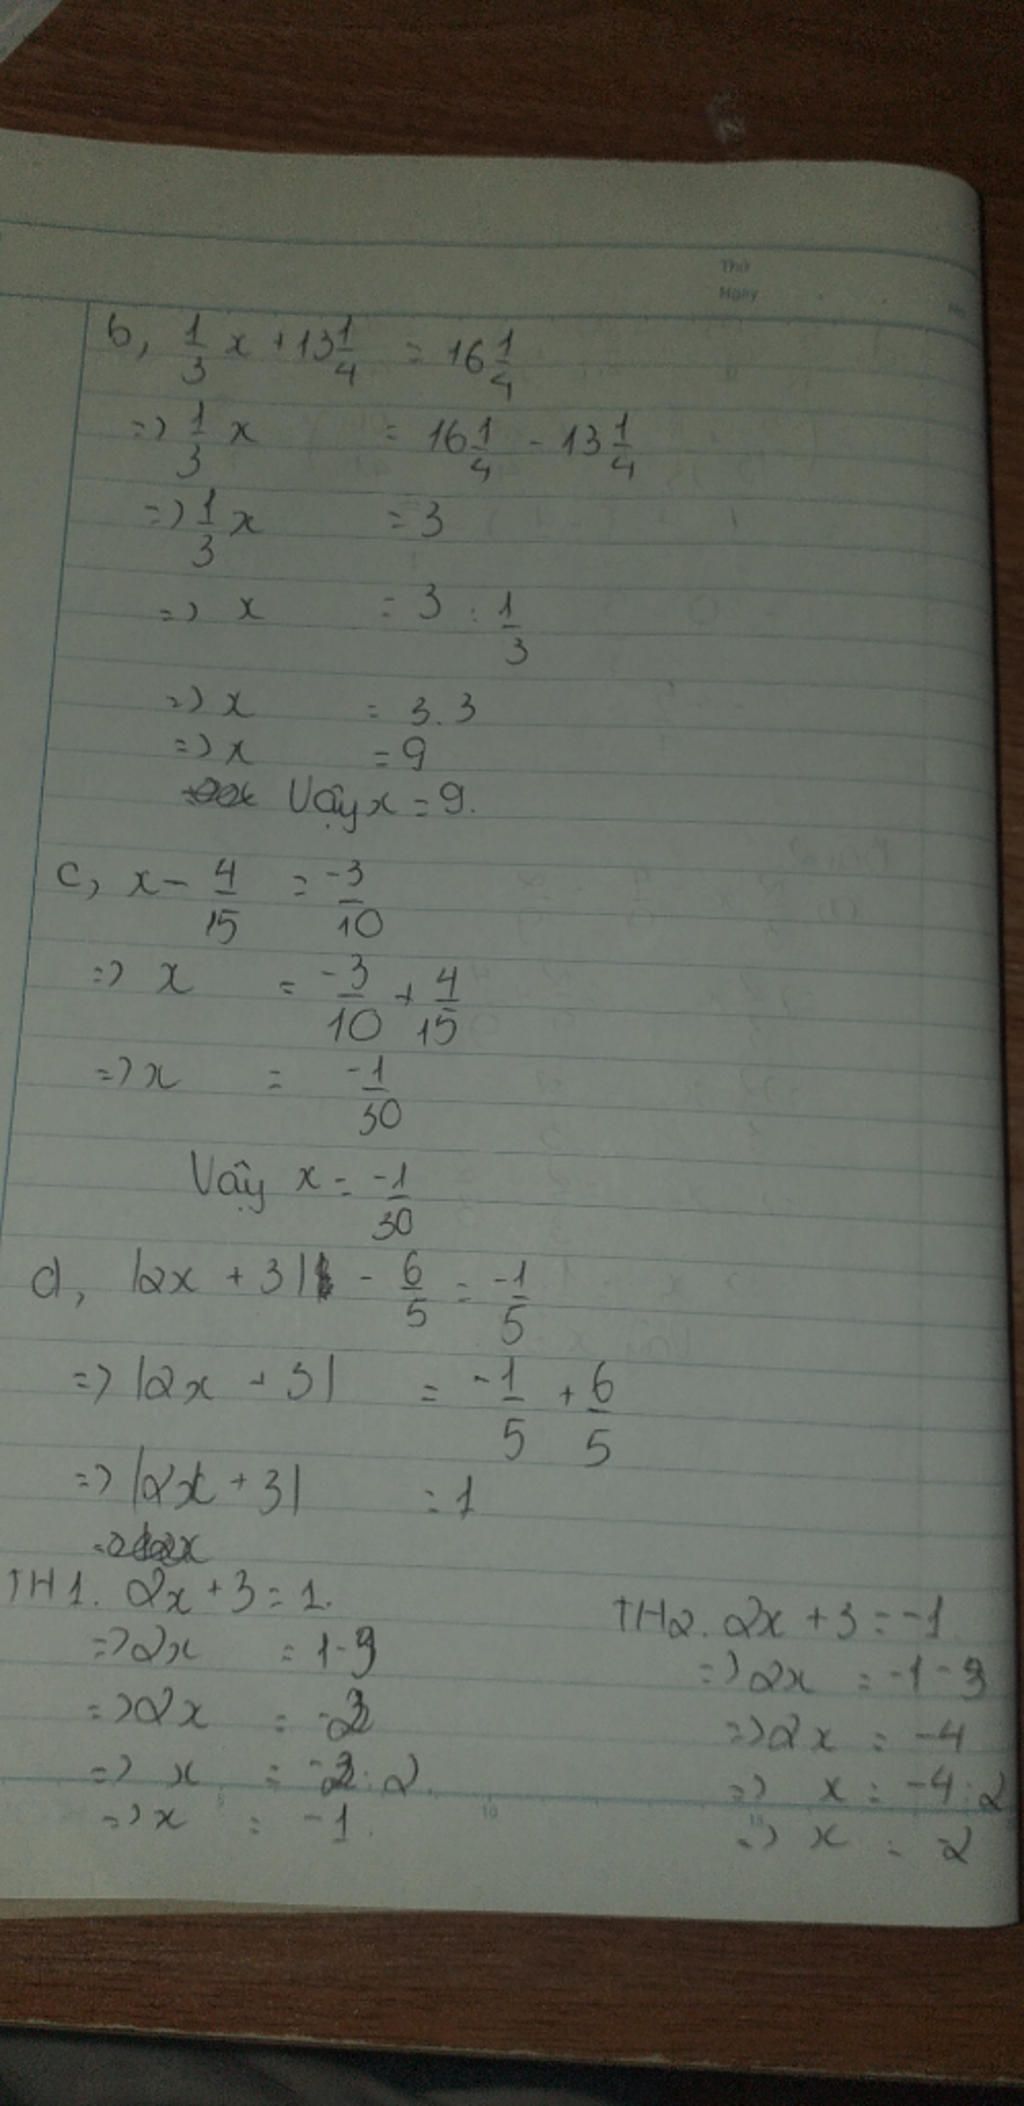 Thứ
Ngày
b, 1/3 x + 13 1/4 = 16 1/4
=> 1/3 x = 16 1/4 - 13 1/4
=> 1/3 x = 3
=> x = 3 : 1/3
=> x = 3.3
=> x = 9
Vậy x = 9.
c, x - 4/15 = -3/10
=> x = -3/10 + 4/15
=> x = -1/30
Vậy x = -1/30
d, |2x + 3| - 6/5 = -1/5
=> |2x + 3| = -1/5 + 6/5
=> |2x + 3| = 1
TH1. 2x + 3 = 1.
=> 2x = 1 - 3
=> 2x = -2
=> x = -2 : 2.
=> x = -1.
TH2. 2x + 3 = -1
=> 2x = -1 - 3
=> 2x = -4
=> x = -4 : 2
=> x = 2
5 10 15